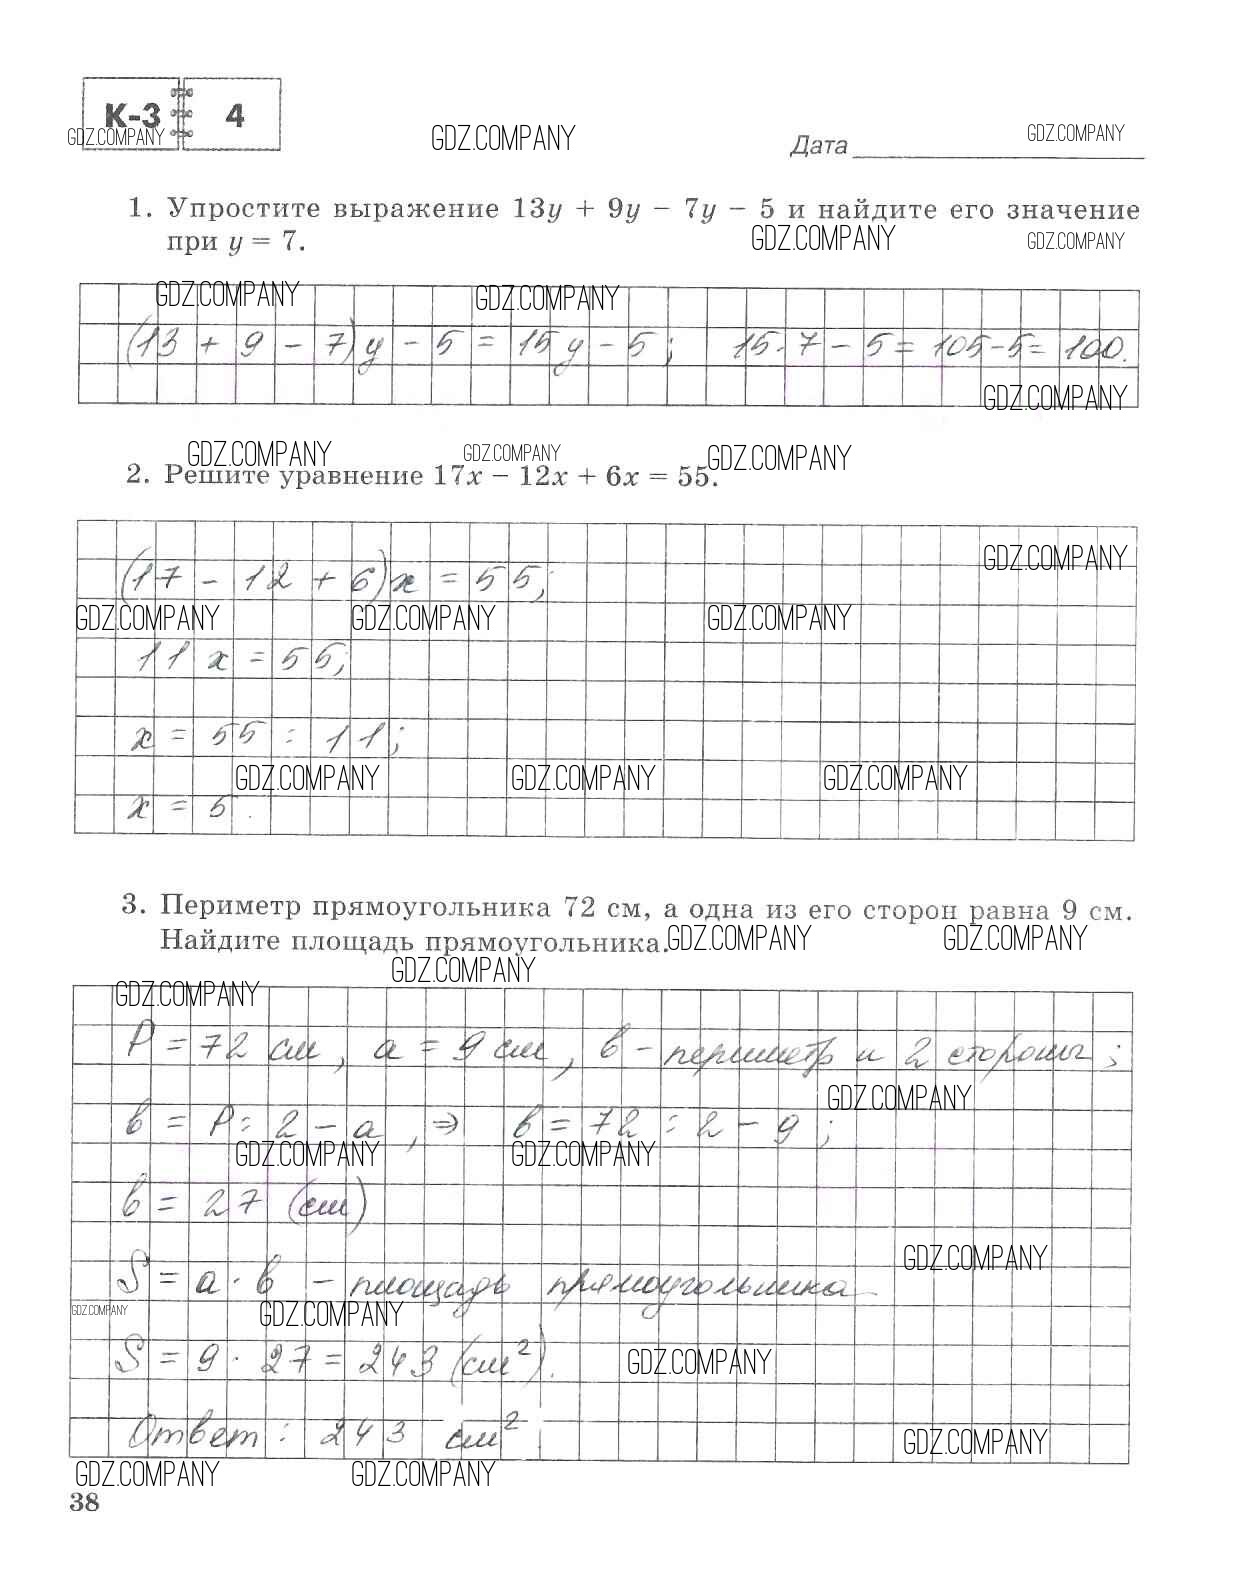 К-3 4
GDZ.COMPANY GDZ.COMPANY GDZ.COMPANY
Дата
1. Упростите выражение 13y + 9y − 7y − 5 и найдите его значение
при y = 7.
GDZ.COMPANY GDZ.COMPANY
GDZ.COMPANY GDZ.COMPANY
(13 + 9 − 7)y − 5 = 15y − 5; 15·7 − 5 = 105−5= 100.
GDZ.COMPANY
GDZ.COMPANY GDZ.COMPANY GDZ.COMPANY
2. Решите уравнение 17x − 12x + 6x = 55.
GDZ.COMPANY
(17 − 12 + 6)x = 55;
GDZ.COMPANY GDZ.COMPANY GDZ.COMPANY
11x = 55;
x = 55 : 11;
GDZ.COMPANY GDZ.COMPANY GDZ.COMPANY
x = 5.
3. Периметр прямоугольника 72 см, а одна из его сторон равна 9 см.
Найдите площадь прямоугольника.
GDZ.COMPANY GDZ.COMPANY
GDZ.COMPANY
GDZ.COMPANY
P = 72 см, a = 9 см, в − периметр и 2 стороны;
GDZ.COMPANY
в = P : 2 − a, ⇒ в = 72 : 2 − 9;
GDZ.COMPANY GDZ.COMPANY
в = 27 (см)
GDZ.COMPANY
S = a · в − площадь прямоугольника
GDZ.COMPANY GDZ.COMPANY
S = 9 · 27 = 243 (см²).
GDZ.COMPANY
Ответ: 243 см²
GDZ.COMPANY
GDZ.COMPANY GDZ.COMPANY
38